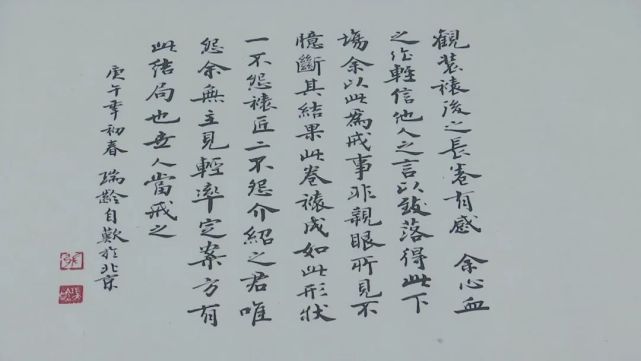 觀裝褙後之長卷有感 余心血
之作輕信他人之言以致落得此下
場余以此為戒事非親眼所見不
憶斷其結果此卷褙成如此形狀
一不怨褙匠二不怨介紹之君唯
怨余無主見輕率定案方有
此結局也世人當戒之
庚午年初春 瑞齡自歎於北京